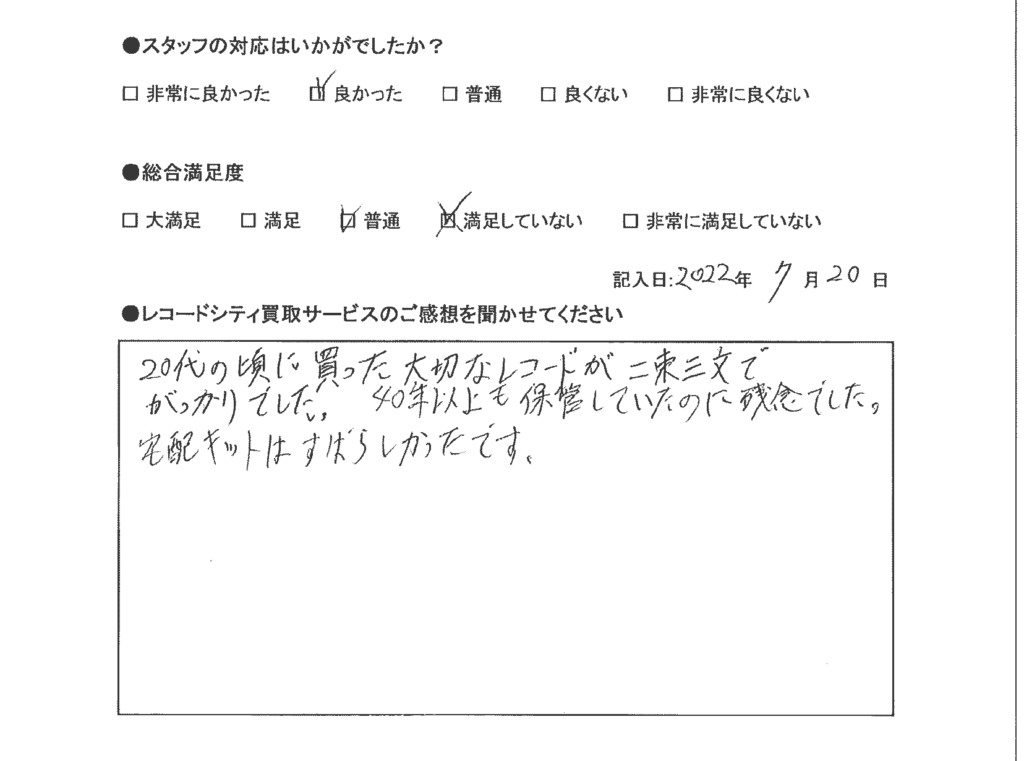 ●スタッフの対応はいかがでしたか？
□ 非常に良かった ☑ 良かった □ 普通 □ 良くない □ 非常に良くない
●総合満足度
□ 大満足 □ 満足 ☑ 普通 ☒ 満足していない □ 非常に満足していない
記入日:2022年 7月20日
●レコードシティ買取サービスのご感想を聞かせてください
20代の頃に買った大切なレコードが二束三文で
がっかりでした。 40年以上も保管していたのに残念でした。
宅配キットはすばらしかったです。